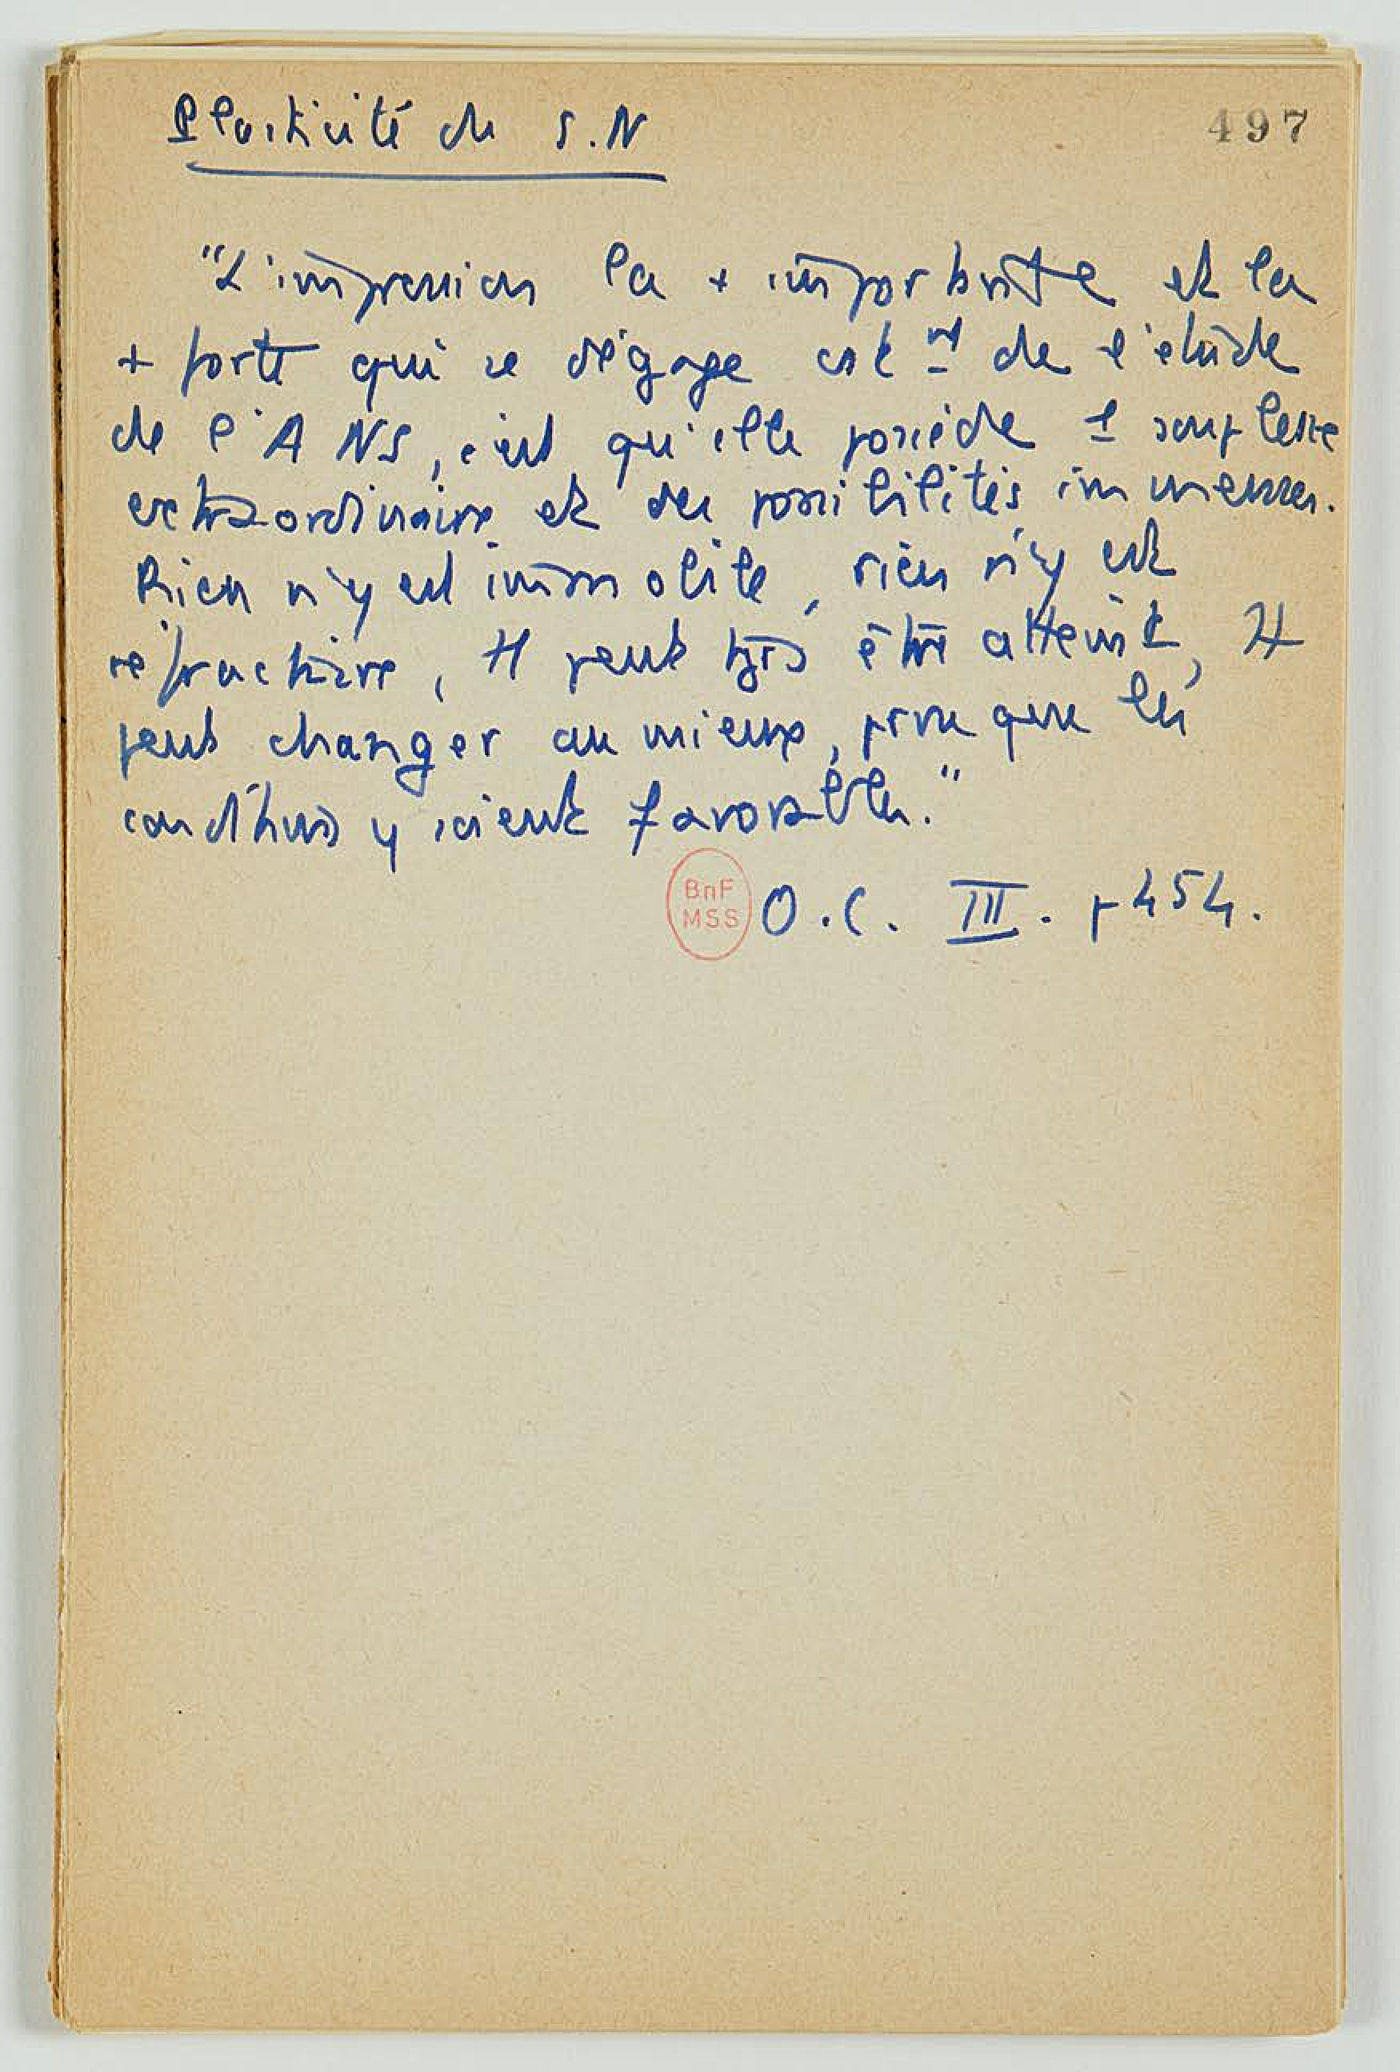 Plasticité du S.N
497
"L'impression la + importante et la
+ forte qui se dégage de l'étude
de l'ANS, c'est qu'elle possède 1 souplesse
extraordinaire et des possibilités immenses.
Rien n'y est immobile, rien n'y est
réfractaire, tt peut tjrs être atteint, tt
peut changer au mieux, pourvu que les
conditions y soient favorables."
BnF
MSS
O.C. III. p 454.